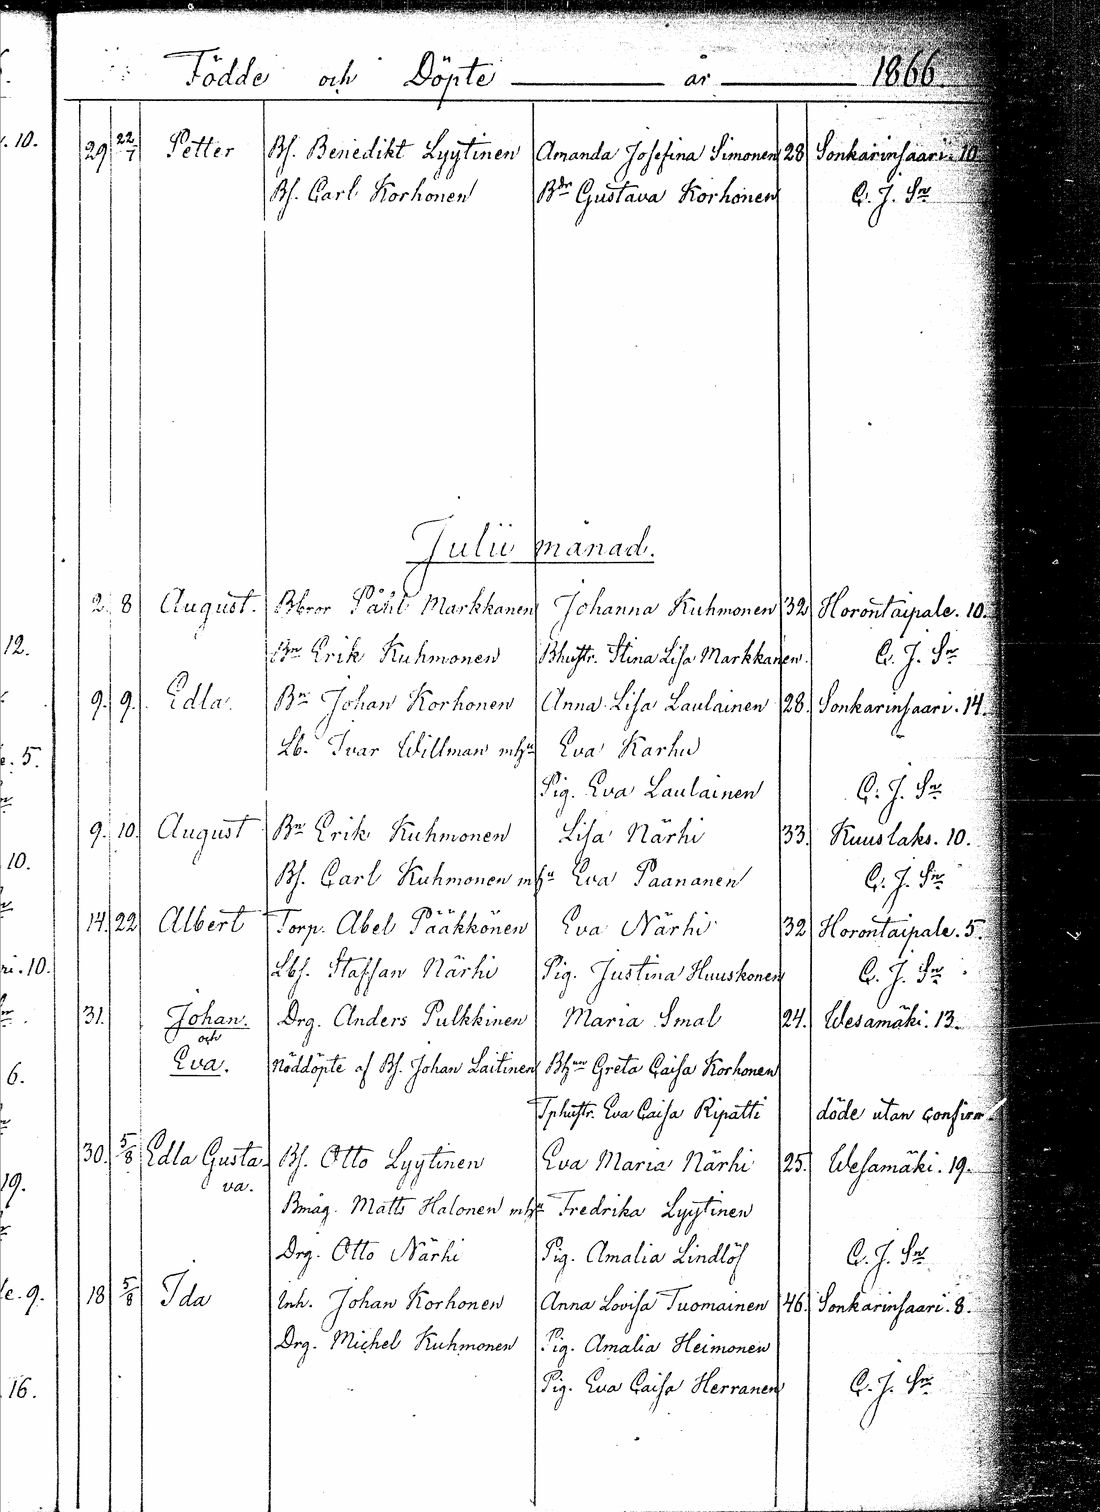 Födde och Döpte år 1866.
10. 29 22/7 Petter Bs. Benedikt Lyytinen Amanda Josefina Simonen 28 Sonkarinsaari. 10.
Bs. Carl Korhonen Bdr Gustava Korhonen C. J. Sn
Julii månad.
2. 8 August. Bbror Påhl Markkanen Johanna Kuhmonen 32 Horontaipale. 10.
12. Bn Erik Kuhmonen Bhustr. Stina Lisa Markkanen. C. J. Sn
9. 9. Edla. Bn Johan Korhonen Anna Lisa Laulainen 28. Sonkarinsaari. 14.
5. Lb. Ivar Willman mhu Eva Karhu
Pig. Eva Laulainen C. J. Sn
9. 10. August Bn Erik Kuhmonen Lisa Närhi 33. Kuuslaks. 10.
10. Bs. Carl Kuhmonen mhu Eva Paananen C. J. Sn
14. 22 Albert Torp. Abel Pääkkönen Eva Närhi 32 Horontaipale. 5.
ri. 10. Lbs. Staffan Närhi Pig. Justina Huuskonen C. J. Sn
31. Johan. Drg. Anders Pulkkinen Maria Smal 24. Wesamäki. 13.
och
6. Eva. Nöddöpte af Bs. Johan Laitinen Bhun Greta Caisa Korhonen
Tphustr. Eva Caisa Ripatti döde utan confirm.
30. 5/8 Edla Gusta Bs. Otto Lyytinen Eva Maria Närhi 25. Wesamäki. 19.
19. va.
Bmåg. Matts Halonen mhu Fredrika Lyytinen
Drg. Otto Närhi Pig. Amalia Lindlöf C. J. Sn
le. 9. 18 5/8 Ida Inh. Johan Korhonen Anna Lovisa Tuomainen 46. Sonkarinsaari. 8.
Drg. Michel Kuhmonen Pig. Amalia Heimonen
16. Pig. Eva Caisa Herranen C. J. Sn